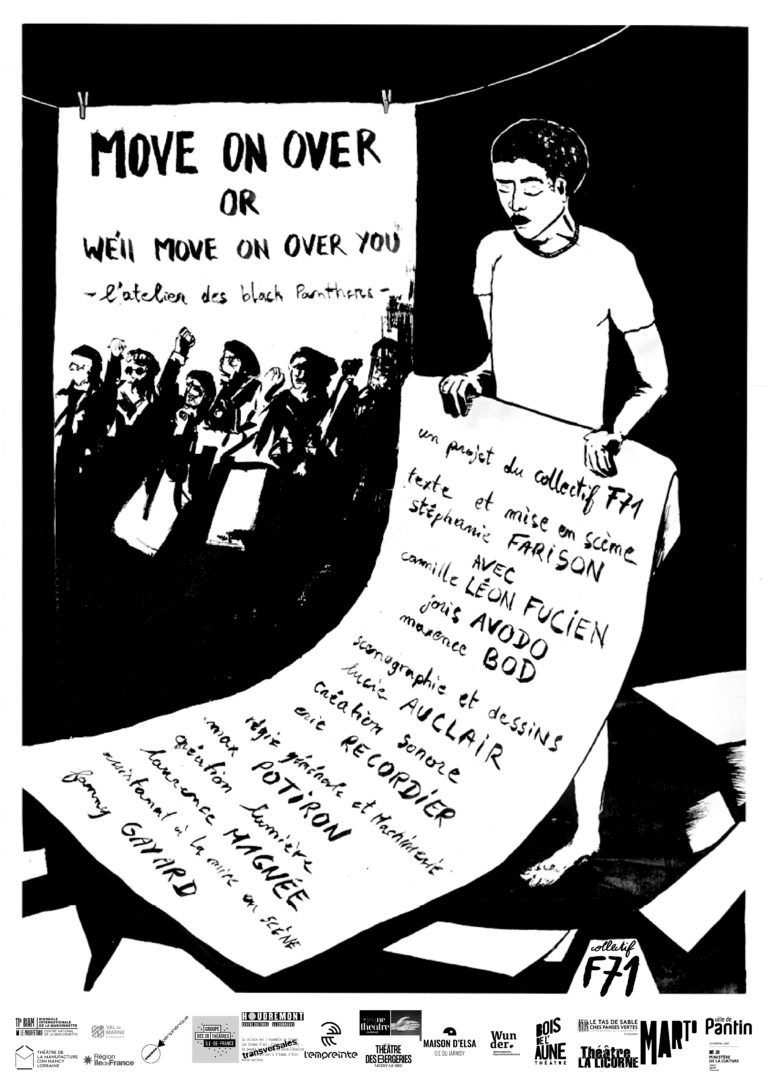 MOVE ON OVER
OR
WE'll MOVE ON OVER YOU
- l'atelier des black Panthers -
un projet du collectif F71
texte et mise en scème
stéphanie FARISON
AVEC
camille LÉON FUCIEN
joris AVODO
maxence BOD
scenographie et dessins
lucie AUCLAIR
création sonore
eric RECORDIER
régie générale et Machinerie
max POTIRON
création lumière
laurence MAGNÉE
assistanat à la mise en SCÈNE
fanny GAYARD
collectif
F71
BIENNALE
INTERNATIONALE
DE LA MARIONNETTE
LE MOUFFETARD
CENTRE NATIONAL
DE LA MARIONNETTE
VAL DE
MARNE
THÉÂTRE DE
LA MANUFACTURE
CDN NANCY
LORRAINE
Région
îledeFrance
GROUPE
DES 20 THÉÂTRES
ILE-DE-FRANCE
HOUDREMONT
CENTRE CULTUREL LA COURNEUVE
transversales
l'empreinte
théâtre
THÉÂTRE
DES BERGERIES
NOISY-LE-SEC
MAISON D'ELSA
CIE DU JARNISY
Wun
der.
BOIS
DE L'
AUNE
THÉÂTRE
LE TAS DE SABLE
CHES PANSES VERTES
Théâtre
LA LICORNE
MARTO
ville de
Pantin
MINISTÈRE
DE LA CULTURE